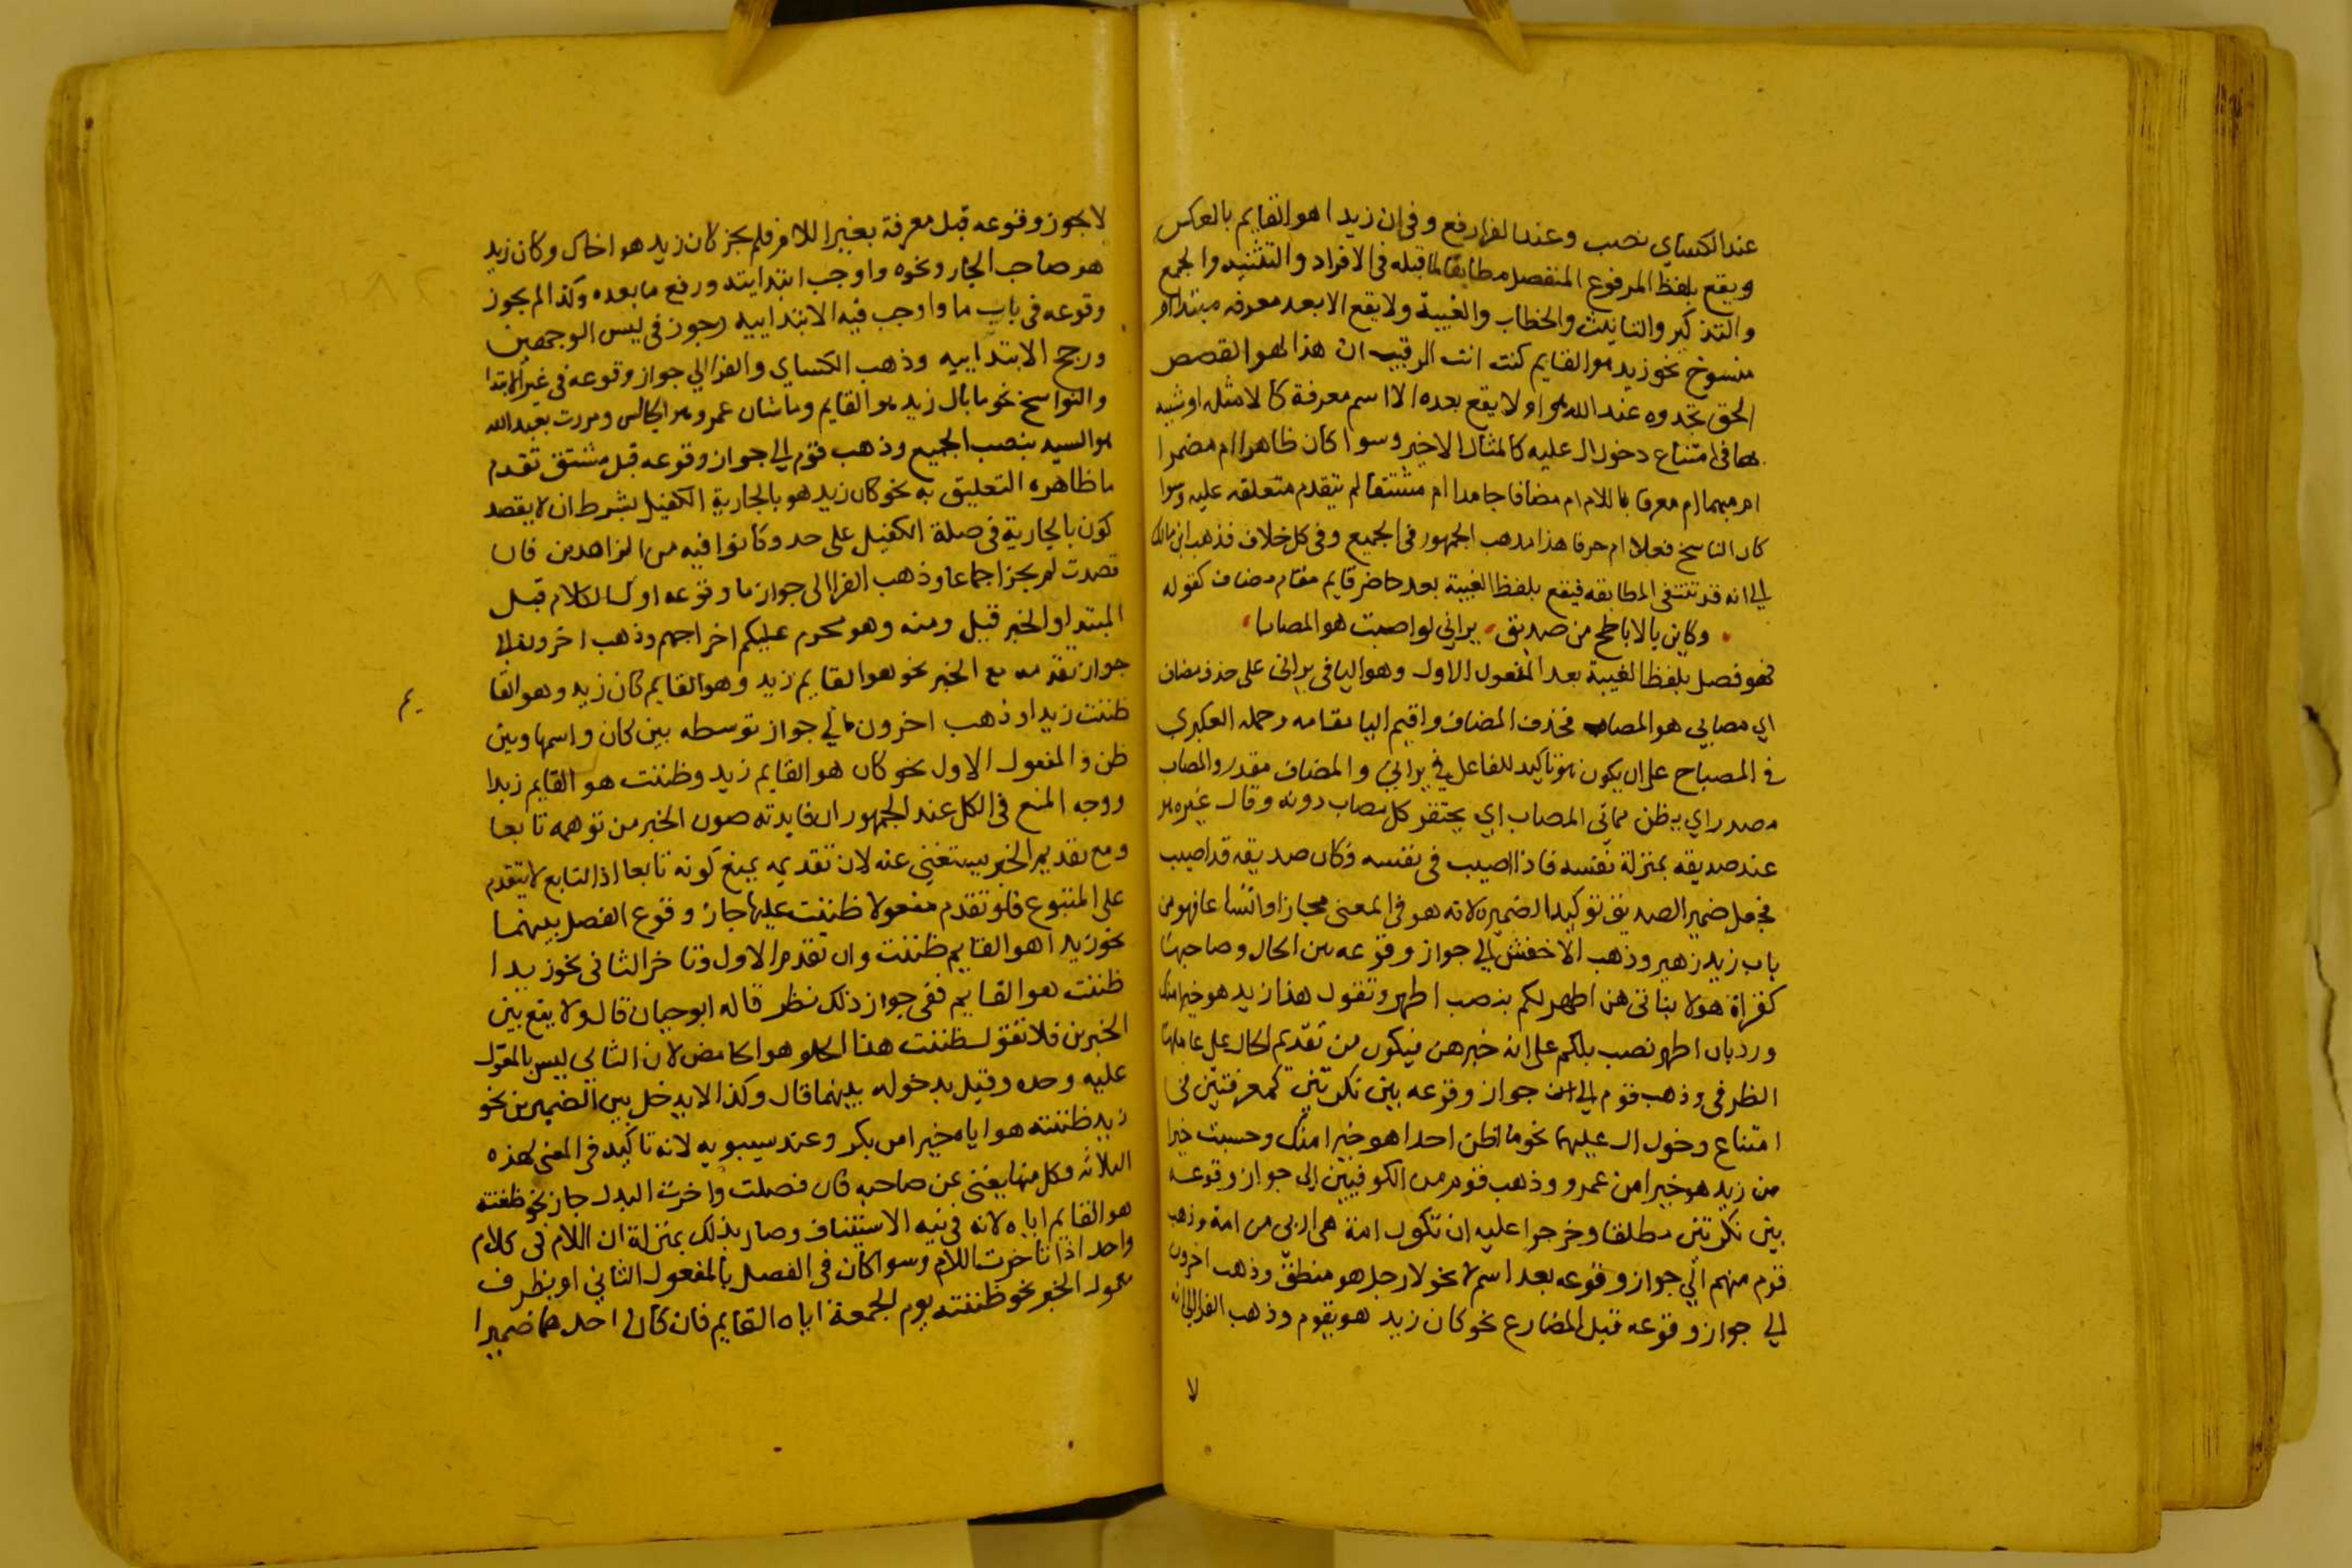 عند الكساي نصب وعند الفرا رفع وفي ان زيدا هو القايم بالعكس
ويقع بلفظ المرفوع المنفصل مطابقا لما قبله في الافراد والتثنيه والجمع
والتذكير والتانيث والخطاب والغيبة ولا يقع الا بعد معرفه مبتدا او
منسوخ نحو زيد هو القايم كنت انت الرقيب ان هذا لهو القصص
الحق تجدوه عند الله هو ولا يقع بعده الا اسم معرفة كالامثله او شبيه
بها في امتناع دخول ال عليه كالمثال الاخير وسوا كان ظاهرا ام مضمرا
ام مبهما ام معرفا باللام ام مضافا جامدا ام مشتقا لم يتقدم متعلقه عليه وسوا
كان الناسخ فعلا ام حرفا هذا مذهب الجمهور في الجميع وفي كل خلاف فذهب ابن مالك
الي انه قد تنتفي المطابقه فيقع بلفظ الغيبة بعد حاضر قايم مقام مضاف كقوله
وكاين بالاباطح من صديق يراني لو اصبت هو المصابا
فهو فصل بلفظ الغيبة بعد المفعول الاول وهو اليا في يراني على حذف مضاف
اي مصابي هو المصاب فحذف المضاف واقيم اليا مقامه وحمله العكبري
في المصباح على ان يكون هو تاكيد للفاعل في يراني والمضاف مقدر والمصاب
مصدر اي يظن مصابي المصاب اي يحتقر كل مصاب دونه وقال غيره هو
عند صديقه بمنزلة نفسه فاذا اصيب في نفسه فكان صديقه قد اصيب
فجعل ضمير الصديق توكيدا لضميره لانه هو في المعنى مجازا واتساعا فهو من
باب زيد زهير وذهب الاخفش الي جواز وقوعه بين الحال وصاحبها
كقراة هولا بناتي هن اطهر لكم بنصب اطهر وتقول هذا زيد هو خيرا منك
ورد بان اطهر نصب بلكم على انه خبر هن فيكون من تقديم الحال على عاملها
الظرفي وذهب قوم الي جواز وقوعه بين نكرتين كمعرفتين في
امتناع دخول ال عليهما نحو ما اظن احدا هو خيرا منك وحسبت خيرا
من زيد هو خيرا من عمرو وذهب قوم من الكوفيين الى جواز وقوعه
بين نكرتين مطلقا وخرجوا عليه ان تكون امة هي اربي من امة وذهب
قوم منهم الي جواز وقوعه بعد اسم لا نحو لا رجل هو منطلق وذهب اخرون
الي جواز وقوعه قبل المضارع نحو كان زيد هو يقوم وذهب الفرا الي انه
لا
لا يجوز وقوعه قبل معرفة بغير اللام فلم يجز كان زيد هو اخاك وكان زيد
هو صاحب الحمار ونحوه واوجب ابتدايته ورفع ما بعده وكذا لم يجوز
وقوعه في باب ما واوجب فيه الابتداييه وجوز في ليس الوجهين
ورجح الابتداييه وذهب الكساي والفرا الي جواز وقوعه في غير الابتدا
والنواسخ نحو ما بال زيد هو القايم وما شان عمرو هو الجالس ومررت بعبد الله
هو السيد بنصب الجميع وذهب قوم الي جواز وقوعه قبل مشتق تقدم
ما ظاهره التعليق به نحو كان زيد هو بالجارية الكفيل بشرط ان لا يقصد
كون بالجارية في صلة الكفيل على حد وكانوا فيه من الزاهدين فان
قصدت لم يجز اجماعا وذهب الفرا الى جواز ما وقوعه اول الكلام قبل
المبتدا والخبر قيل ومنه وهو محرم عليكم اخراجهم وذهب اخرون الي
جواز تقدمه مع الخبر نحو هو القايم زيد وهو القايم كان زيد وهو القا
يم
ظننت زيدا وذهب اخرون الي جواز توسطه بين كان واسمها وبين
ظن والمفعول الاول نحو كان هو القايم زيد وظننت هو القايم زيدا
ووجه المنع في الكل عند الجمهور ان فايدته صون الخبر من توهمه تابعا
ومع تقديم الخبر يستغني عنه لان تقديمه يمنع كونه تابعا اذ التابع لا يتقدم
على المتبوع فلو تقدم مفعولا ظننت عليها جاز وقوع الفصل بينهما
نحو زيدا هو القايم ظننت وان تقدم الاول وتاخر الثاني نحو زيدا
ظننت هو القايم ففي جواز ذلك نظر قاله ابو حيان قال ولا يقع بين
الخبرين فلا تقول ظننت هذا الحلو هو الحامض لان الثاني ليس بالمعول
عليه وحده وقيل بدخوله بينهما قال وكذا لا يدخل بين الضميرين نحو
زيد ظننته هو اياه خيرا من بكر وعند سيبويه لانه تاكيد في المعني لهذه
الثلاثه وكل منها يغني عن صاحبه فان فصلت واخرت البدل جاز نحو ظننته
هو القايم اياه لانه في نيه الاستيناف وصار بذلك بمنزلة ان اللام في كلام
واحد اذا تاخرت اللام وسوا كان في الفصل بالمفعول الثاني او بظرف
معمول الخبر نحو ظننته يوم الجمعة اياه القايم فان كان احدهما ضميرا